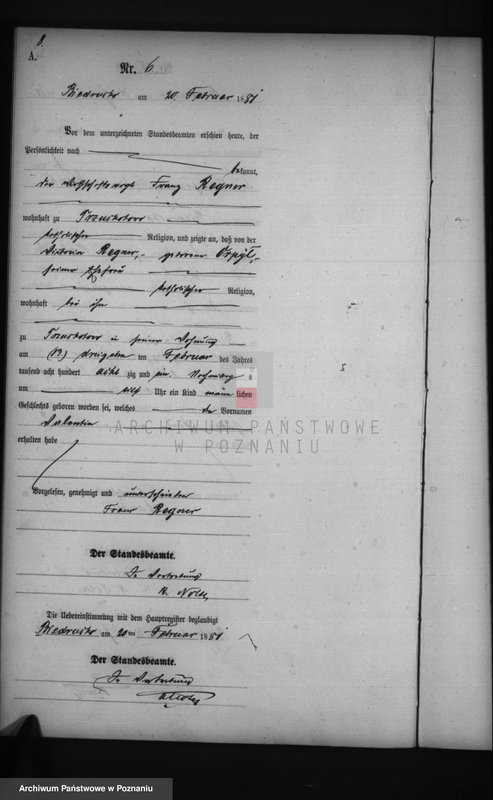 8.
A.
Nr. 6.
Biedrusko am 20. Februar 1881
Vor dem unterzeichneten Standesbeamten erschien heute, der
Persönlichkeit nach
bekannt,
der Wirthschaftsvogt Franz Regner
wohnhaft zu
katholischer Religion, und zeigte an, daß von der
Victoria Regner, geborene
seiner Ehefrau
katholischer Religion,
wohnhaft bei ihm
zu in seiner Wohnung
am des Februar des Jahres
tausend acht hundert acht zig und ein, Vormittag s
um elf Uhr ein Kind männ lichen
Geschlechts geboren worden sei, welches den Vornamen
Valentin
erhalten habe
Vorgelesen, genehmigt und unterschrieben
Franz Regner
Der Standesbeamte.
In Vertretung
Die Uebereinstimmung mit dem Hauptregister beglaubigt
Biedrusko am 20ten Februar 1881
Der Standesbeamte.
In Vertretung
ARCHIWUM PAŃSTWOWE
W POZNANIU
Archiwum Państwowe w Poznaniu